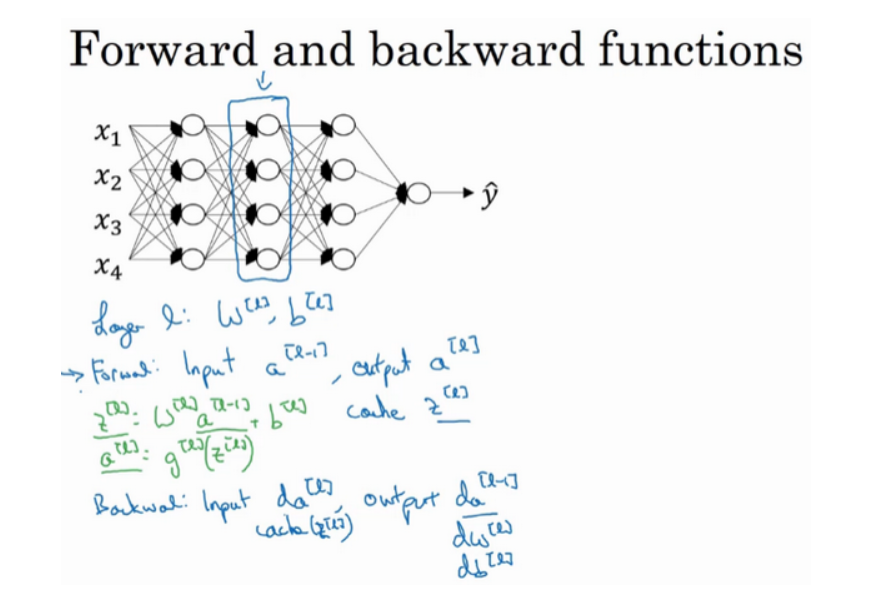 Forward and backward functions
x₁
x₂
x₃
x₄
ŷ
Layer l: W^[l], b^[l]
→ Forward: Input a^[l-1], output a^[l]
z^[l] = W^[l] a^[l-1] + b^[l] cache z^[l]
a^[l] = g^[l](z^[l])
Backward: Input da^[l], output da^[l-1]
cache (z^[l]) dW^[l]
db^[l]